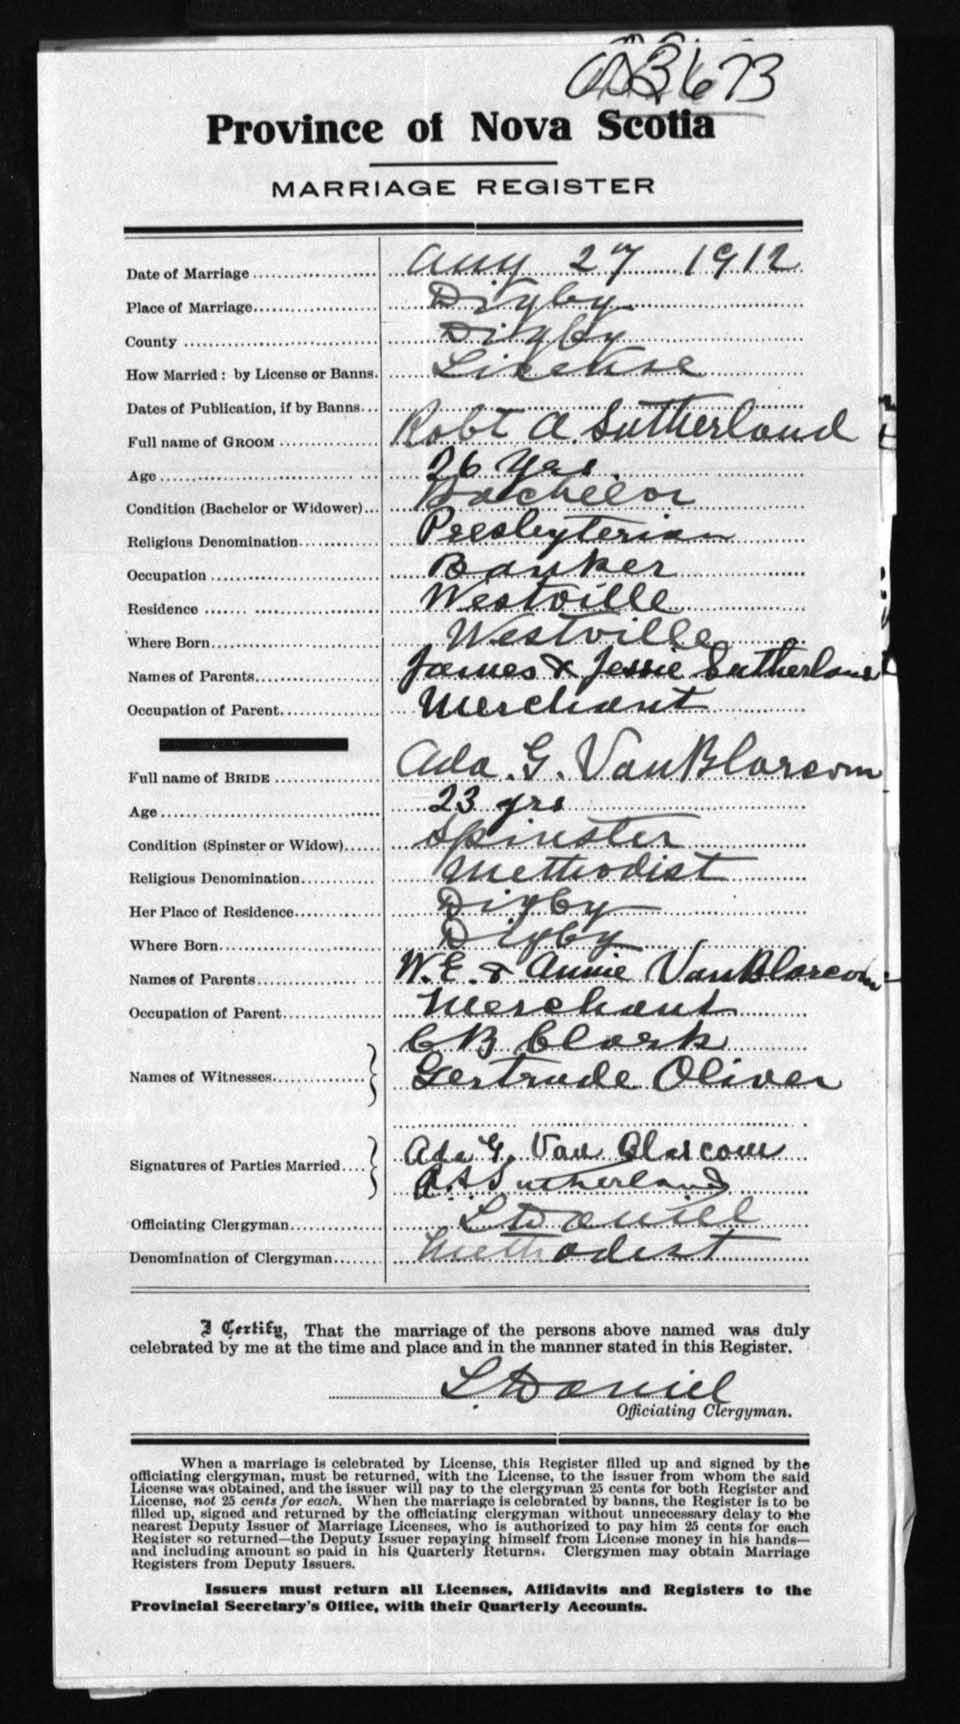 3673
Province of Nova Scotia
MARRIAGE REGISTER
Date of Marriage Aug 27 1912
Place of Marriage Digby
County Digby
How Married: by License or Banns. License
Dates of Publication, if by Banns
Full name of GROOM Robt A. Sutherland
Age 26 Yrs.
Condition (Bachelor or Widower) Bachelor
Religious Denomination Presbyterian
Occupation Banker
Residence Westville
Where Born Westville
Names of Parents James & Jessie Sutherland
Occupation of Parent Merchant
Full name of BRIDE Ada. G. VanBlarcom
Age 23 yrs
Condition (Spinster or Widow) Spinster
Religious Denomination Methodist
Her Place of Residence Digby
Where Born Digby
Names of Parents W. E. & Annie VanBlarcom
Occupation of Parent Merchant
C B Clark
Names of Witnesses Gertrude Oliver
Signatures of Parties Married Ada G. Van Blarcom
R. A. Sutherland
Officiating Clergyman L Daniel
Denomination of Clergyman Methodist
I Certify, That the marriage of the persons above named was duly
celebrated by me at the time and place and in the manner stated in this Register.
L. Daniel
Officiating Clergyman.
When a marriage is celebrated by License, this Register filled up and signed by the
officiating clergyman, must be returned, with the License, to the issuer from whom the said
License was obtained, and the issuer will pay to the clergyman 25 cents for both Register and
License, not 25 cents for each. When the marriage is celebrated by banns, the Register is to be
filled up, signed and returned by the officiating clergyman without unnecessary delay to the
nearest Deputy Issuer of Marriage Licenses, who is authorized to pay him 25 cents for each
Register so returned—the Deputy Issuer repaying himself from License money in his hands—
and including amount so paid in his Quarterly Returns. Clergymen may obtain Marriage
Registers from Deputy Issuers.
Issuers must return all Licenses, Affidavits and Registers to the
Provincial Secretary's Office, with their Quarterly Accounts.